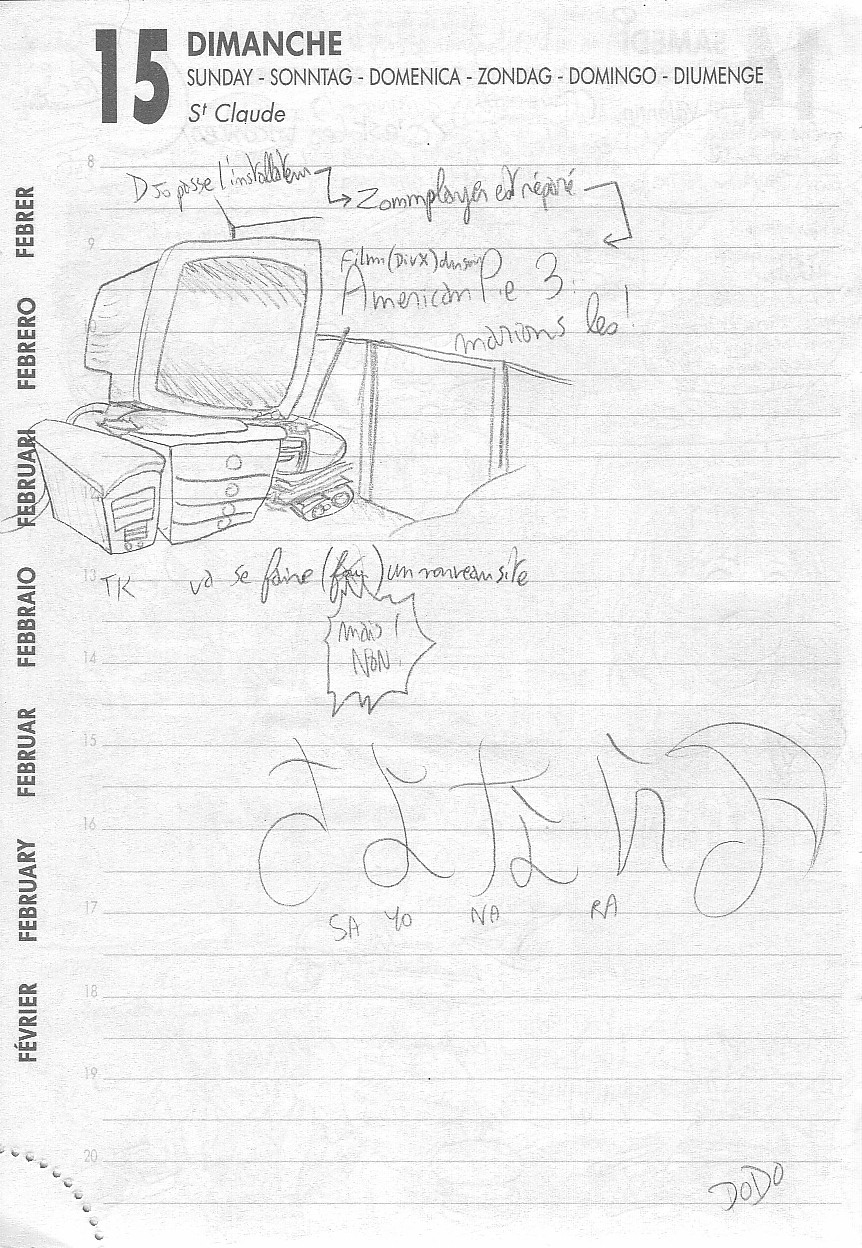 15 DIMANCHE
SUNDAY - SONNTAG - DOMENICA - ZONDAG - DOMINGO - DIUMENGE
St Claude
8
posse l'installateur
Zommplayer est réparé
9
Film (DivX) du soir
American Pie 3:
marions les!
10
11
12
13
TK va se faire un nouveau site
mais!
NON!
14
15
さよなら
16
SA YO NA RA
17
18
19
20
DODO
FÉVRIER FEBRUARY FEBRUAR FEBBRAIO FEBRUARI FEBRERO FEBRER